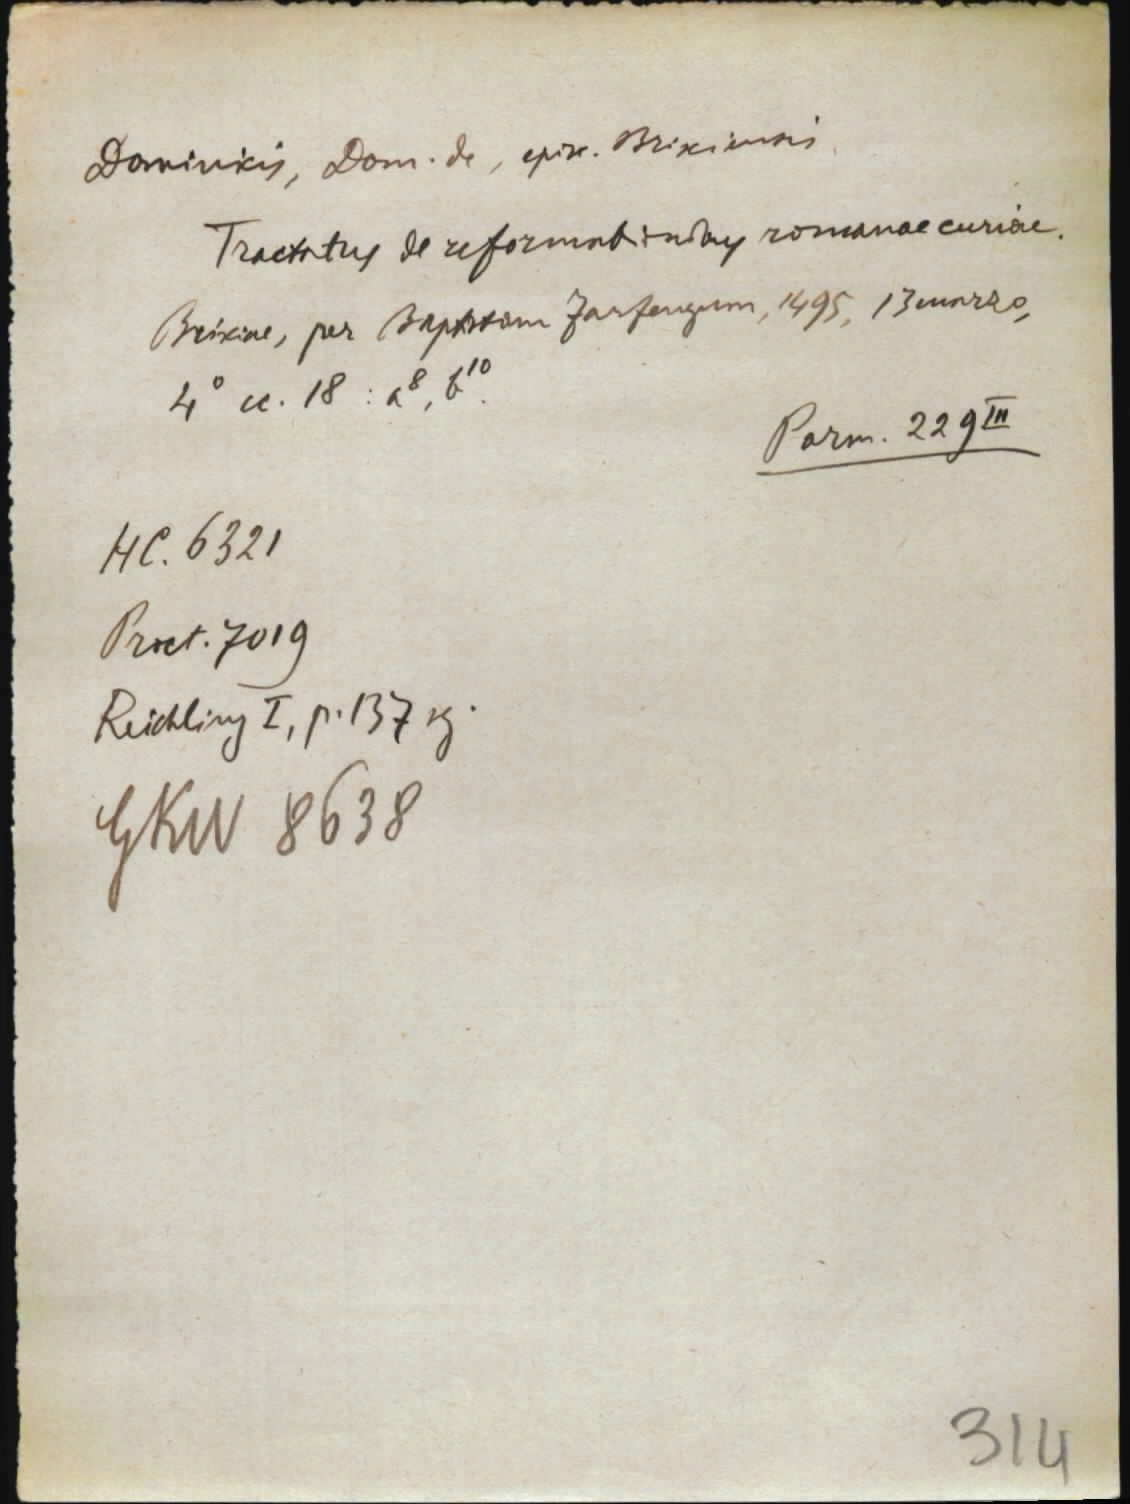 Dominicis, Dom. de, episc. Brixiensis
Tractatus de reformationibus romanae curiae.
Brixiae, per Baptistam Farfengum, 1495, 13 marzo,
4° cc. 18 : a⁸, b¹⁰.
Parm. 229 III
HC. 6321
Proct. 7019
Reichling I, p. 137 sg.
GKW 8638
314